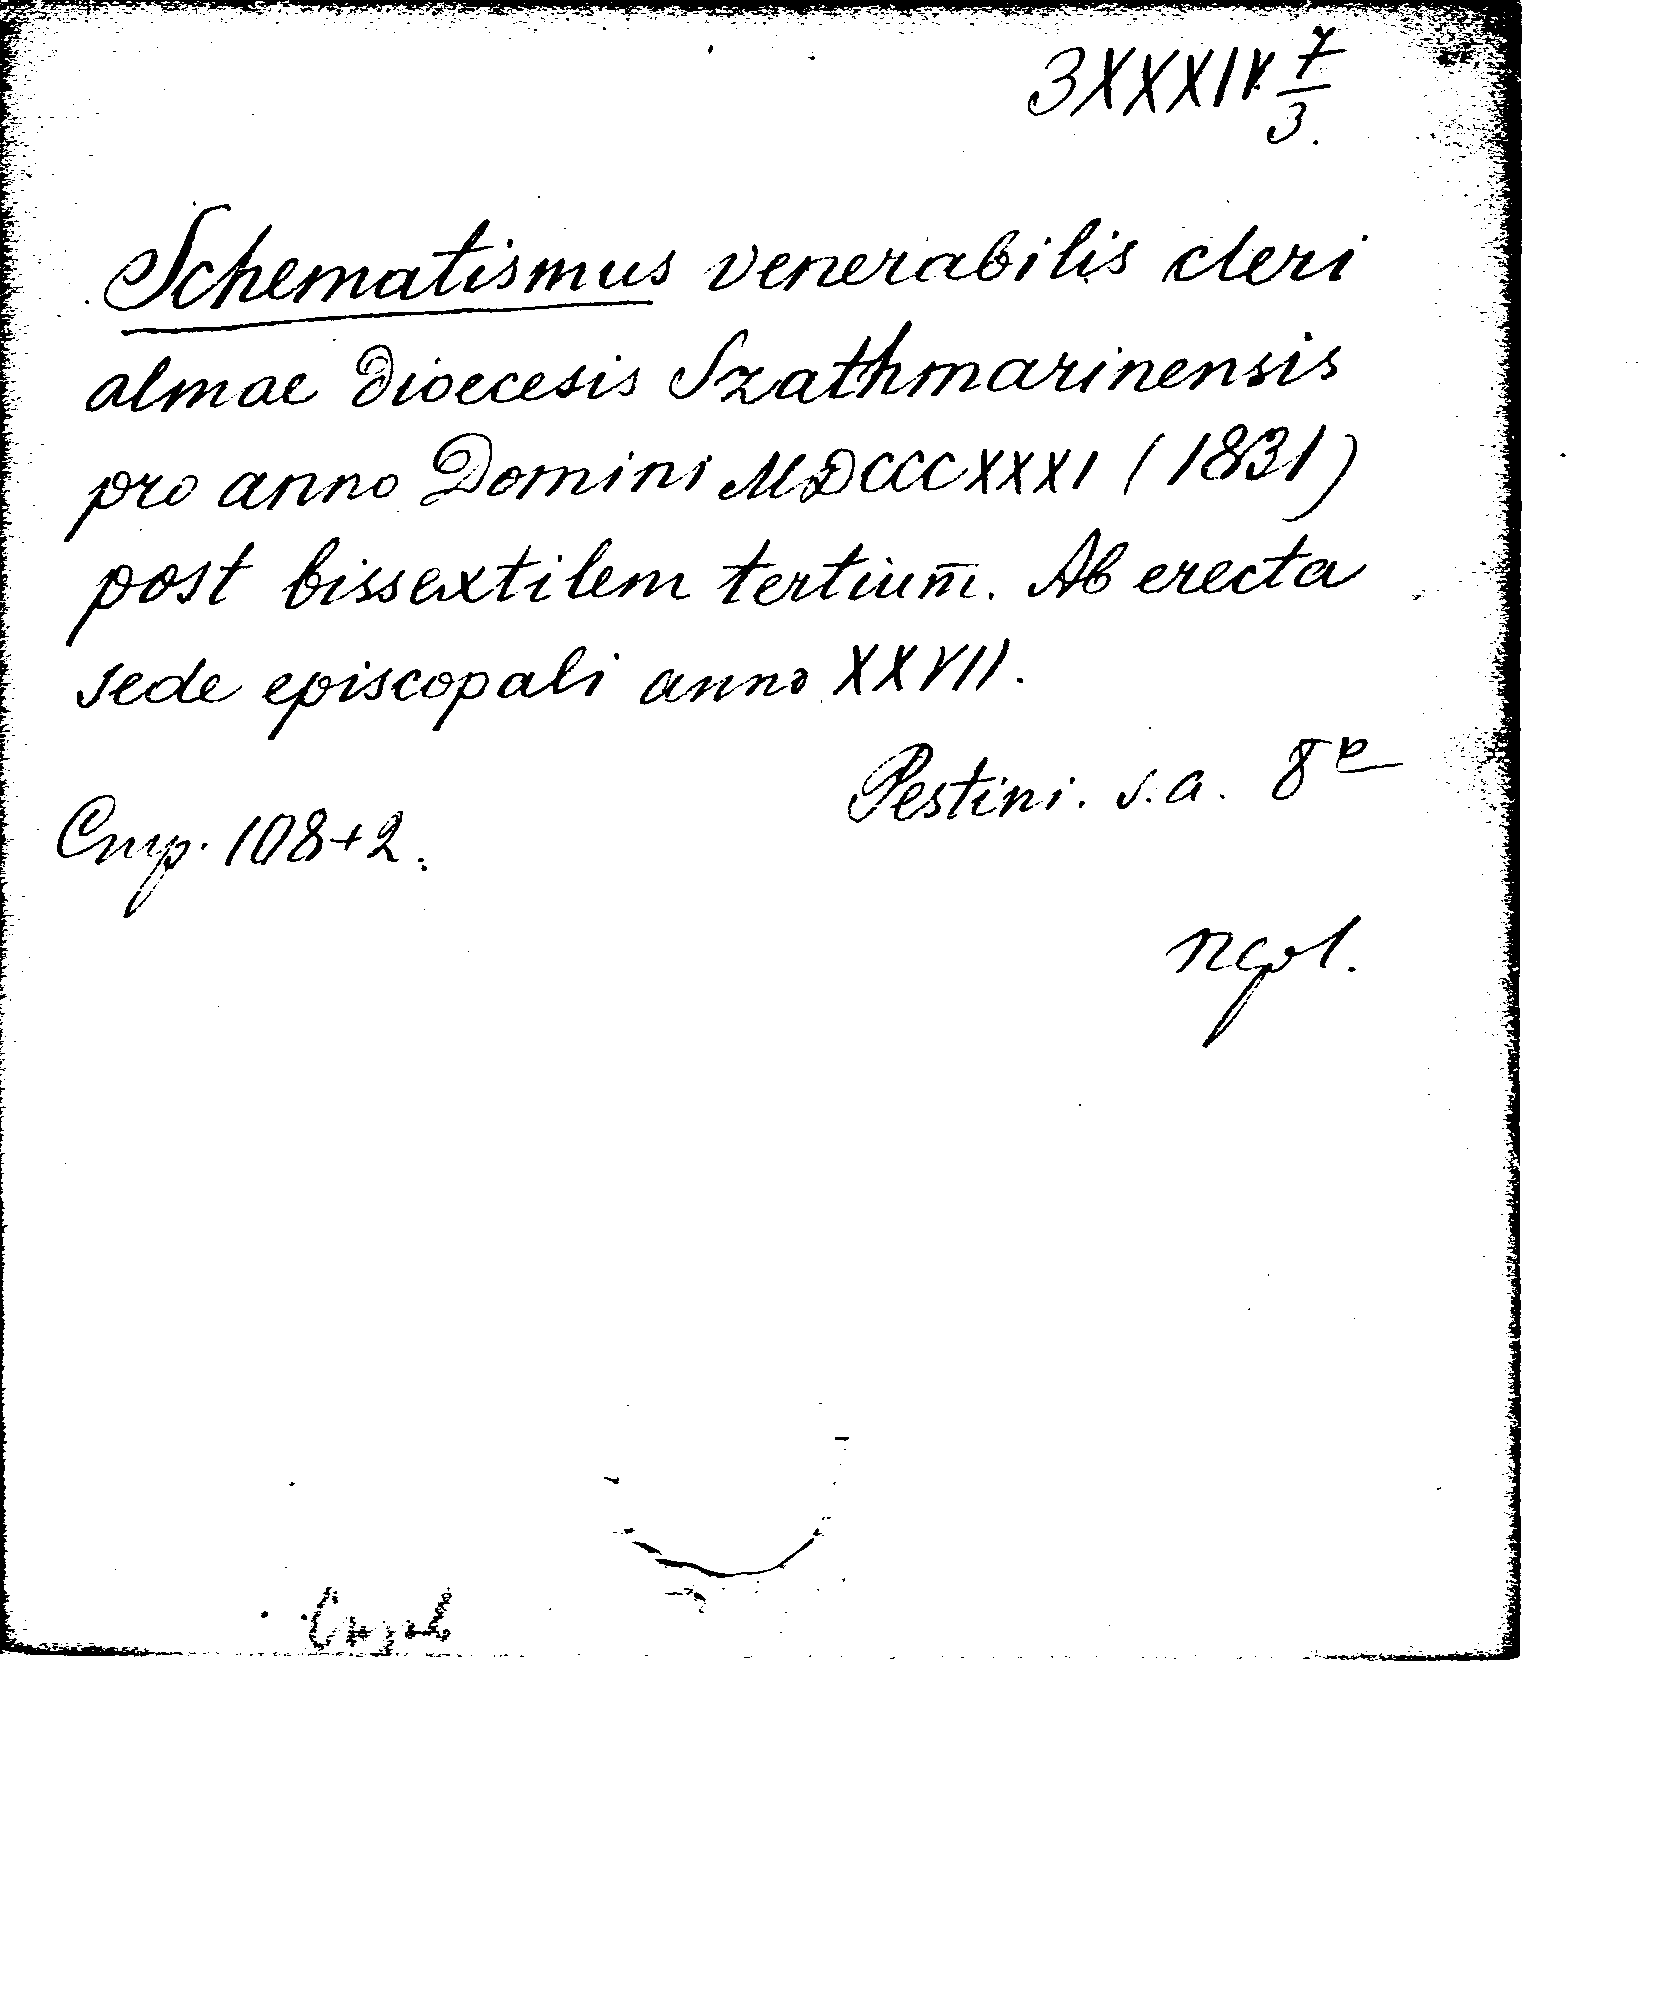 3XXXIV 7/3.
Schematismus venerabilis cleri
almae Dioecesis Szathmarinensis
pro anno Domini MDCCCXXXI (1831)
post bissextilem tertium̄. Ab erecta
sede episcopali anno XXVII.
Pestini. s.a. 8º
Cmp. 108+2.